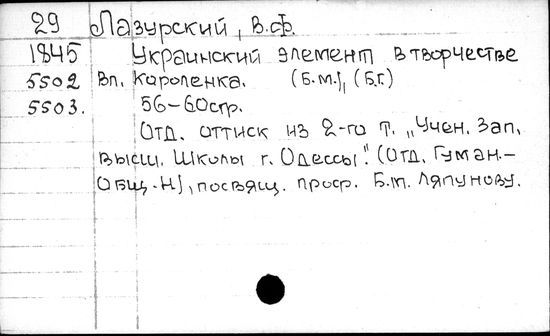 29 Лазурский, В.Ф.
1845 Украинский элемент в творчестве
5502 Вл. Короленка. (Б.м.), (Б.г.)
5503. 56-60стр.
Отд. оттиск из 2-го т. „Учен. Зап.
высш. Школы г. Одессы". (Отд. Гуман.-
Общ.-Н), посвящ. проф. Б.м. Ляпунову.